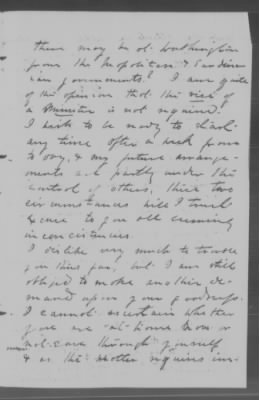 there may be at Washington
from the Neapolitan & Sardinian
governments? I am quite
of the opinion that the
of a Minister is not required.
I wish to be ready to
any time after a week from
to day, & my future arrange-
ments are partly under the
control of others, these two
circumstances will I trust
excuse to you all seeming
inconsistencies.
I dislike very much to trouble
you thus far, but I am still
obliged to make another de-
mand upon your goodness.
I cannot ascertain whether
you are at home now or
not save through yourself
& as the matter requires im-